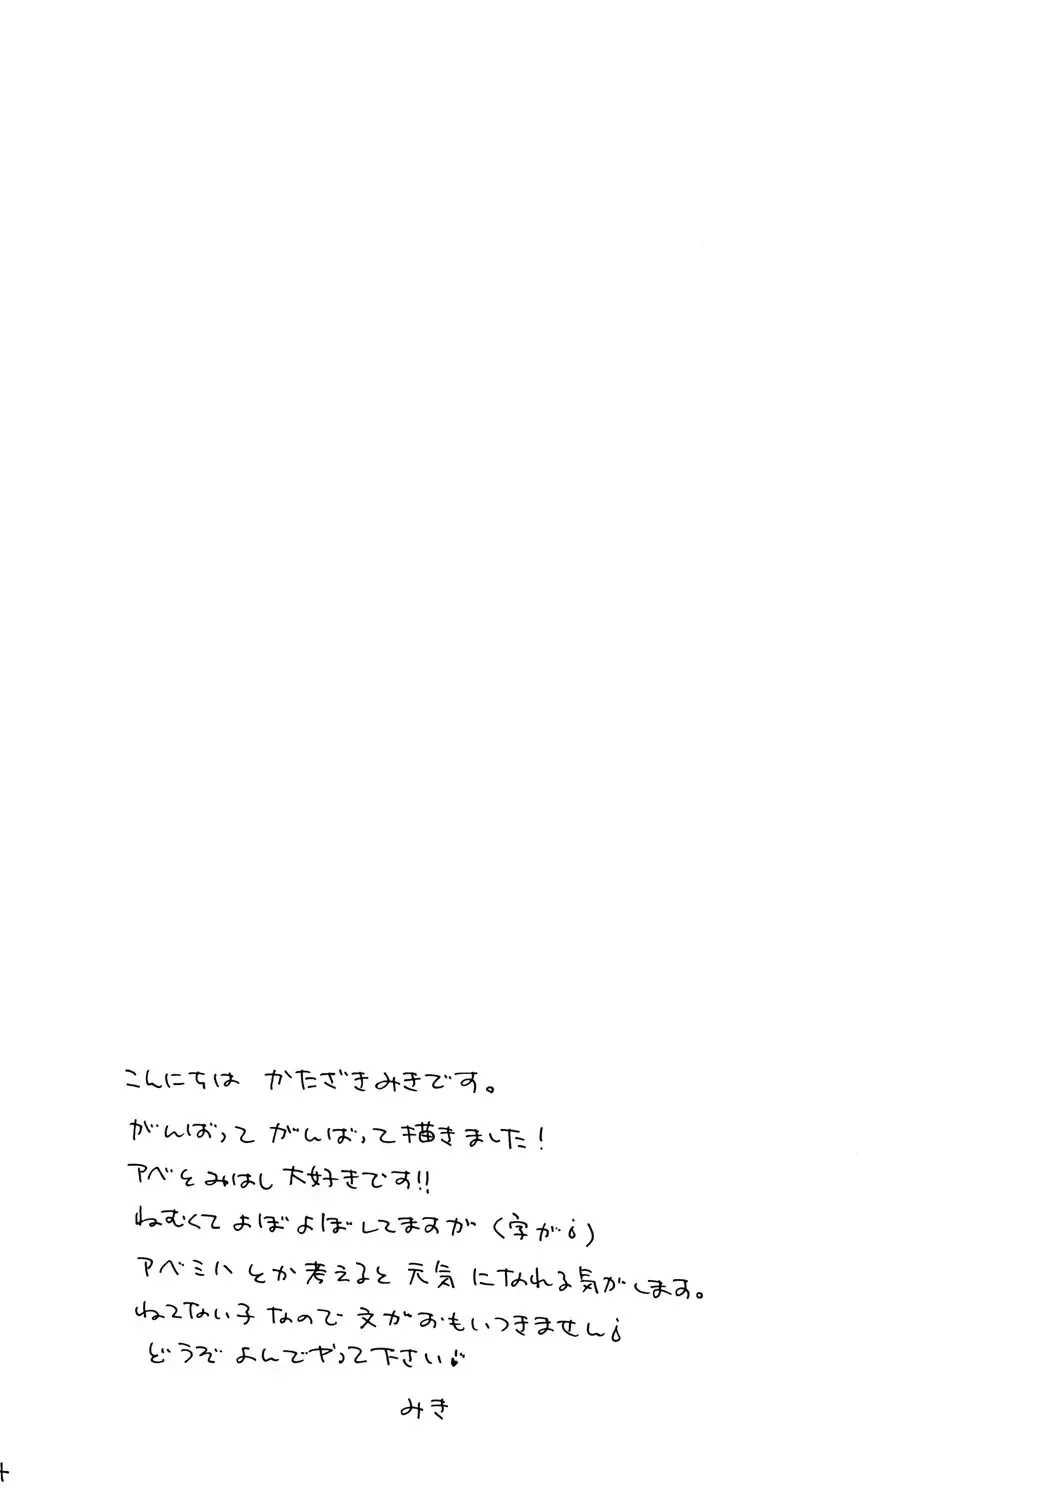 こんにちは かたざきみきです。
がんばって がんばって描きました!
アベとみはし大好きです!!
ねむくて よぼよぼしてますが(字が💧)
アベミハとか考えると 元気になれる気がします。
ねてない子なので 文がおもいつきません💧
どうぞ よんでやって下さい♪
みき